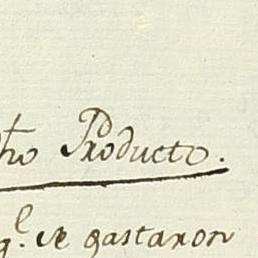 dho Producto.
q.l se gastaron